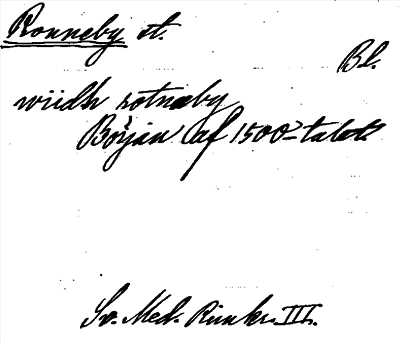 Ronneby st.
Bl.
wiidh rotnæby
Början af 1500-talet
Sv. Med. Rimkr. III.